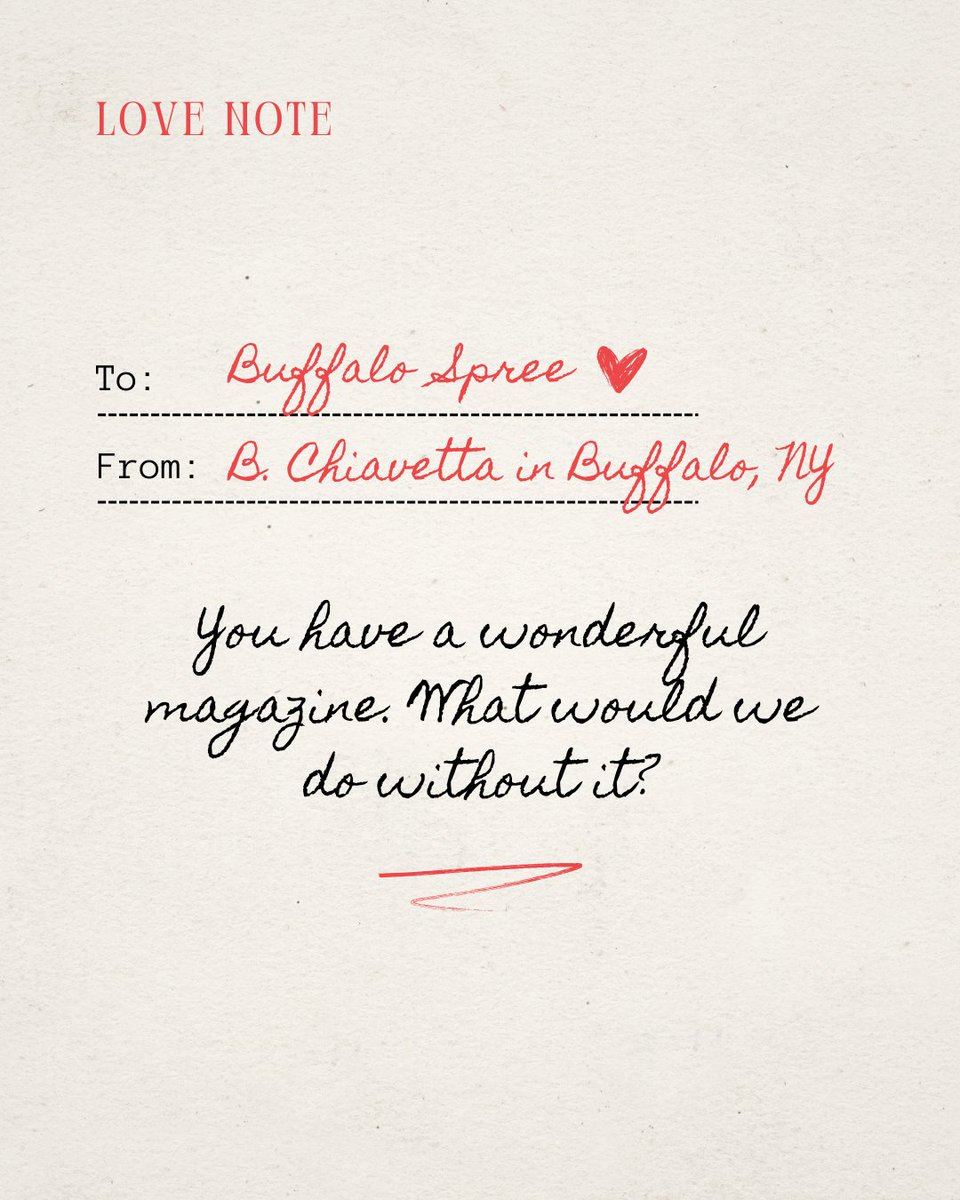 LOVE NOTE
To: Buffalo Spree
From: B. Chiavetta in Buffalo, NY
You have a wonderful
magazine. What would we
do without it?